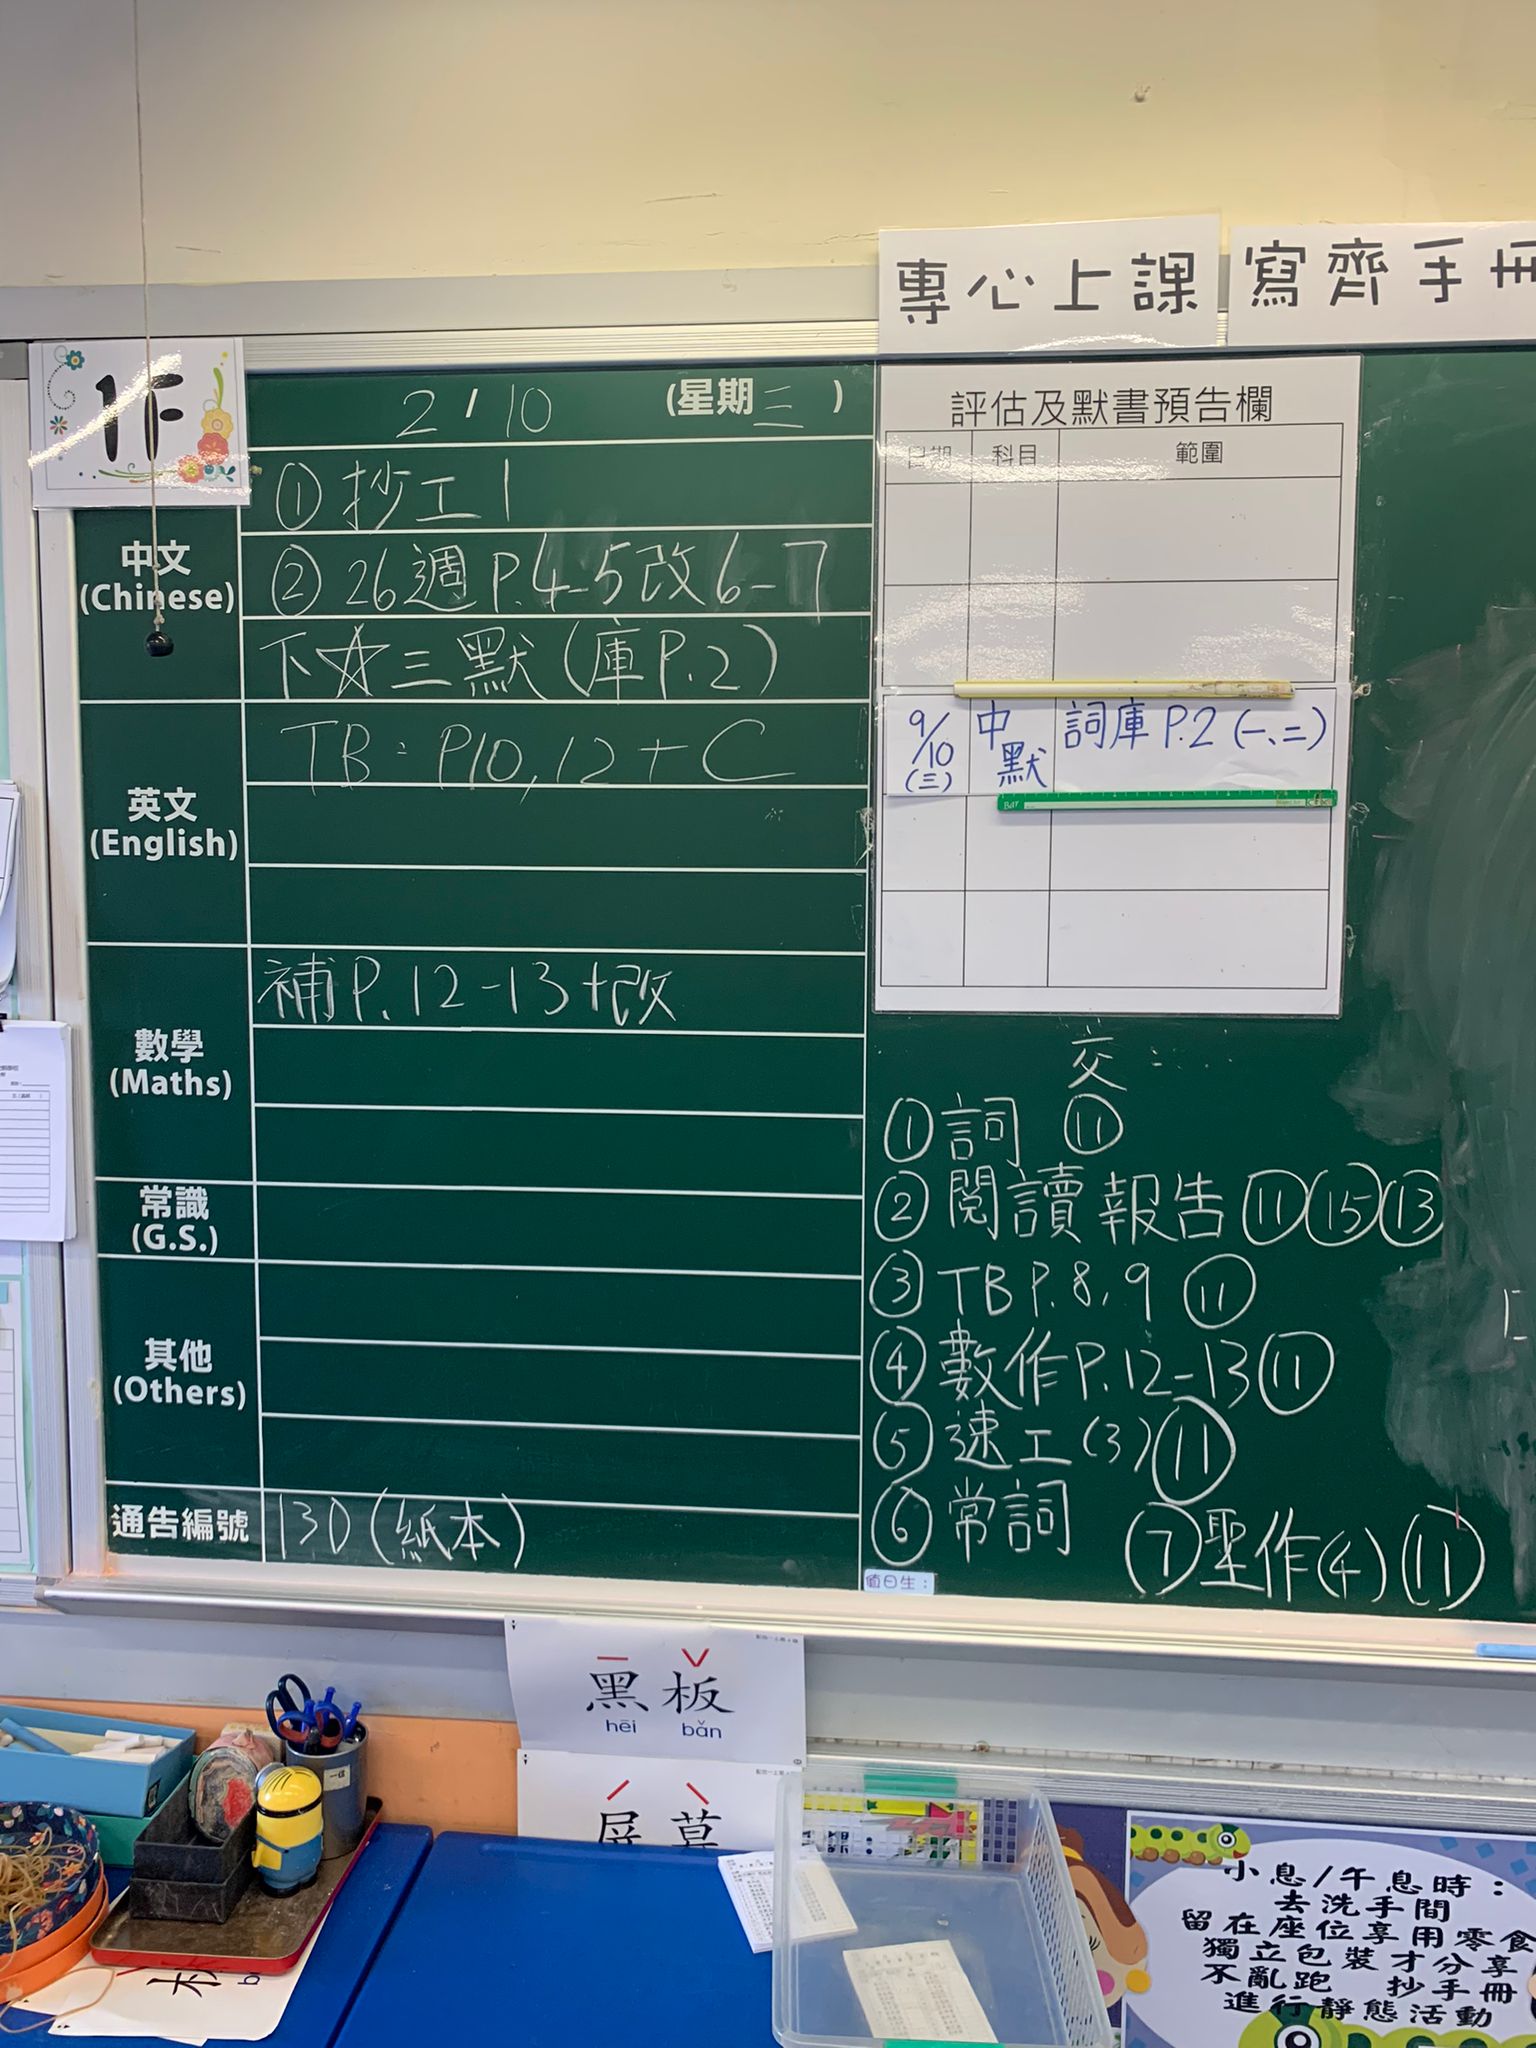 專心上課 寫齊手冊
1F
2/10 (星期三)
中文
(Chinese)
① 抄工1
② 26週P.4-5改6-7
下☆三默(庫P.2)
英文
(English)
TB: P10,12+C
數學
(Maths)
補P.12-13+改
常識
(G.S.)
其他
(Others)
通告編號
130(紙本)
評估及默書預告欄
日期 科目 範圍
9/10(三) 中默 詞庫P.2(一、二)
交:
① 詞 ⑪
② 閱讀報告 ⑪⑮⑬
③ TB P.8,9 ⑪
④ 數作P.12-13 ⑪
⑤ 速工(3) ⑪
⑥ 常詞
⑦ 聖作(4) ⑪
值日生:
黑板
hēi bǎn
小息/午息時:
去洗手間
留在座位享用零食
獨立包裝才分享
不亂跑 抄手冊
進行靜態活動